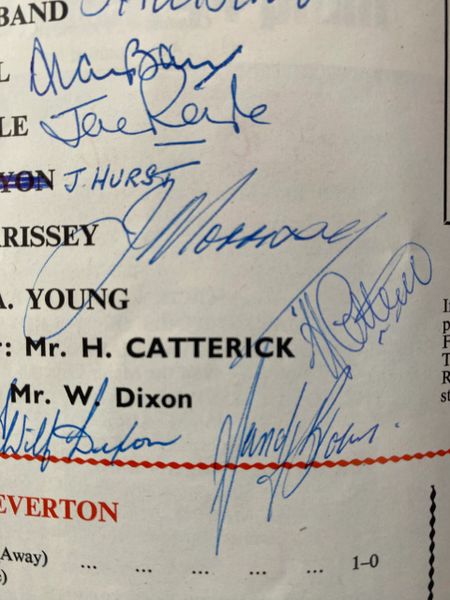 BAND
L Alan Ball
LE Joe Royle
YON J. HURST
RISSEY J Morrissey
A. YOUNG
r: Mr. H. CATTERICK H Catterick
Mr. W. Dixon
Wilf Dixon Sandy Brown
EVERTON
Away) ... ... ... ... ... 1-0
e)
In
p
F
T
R
st